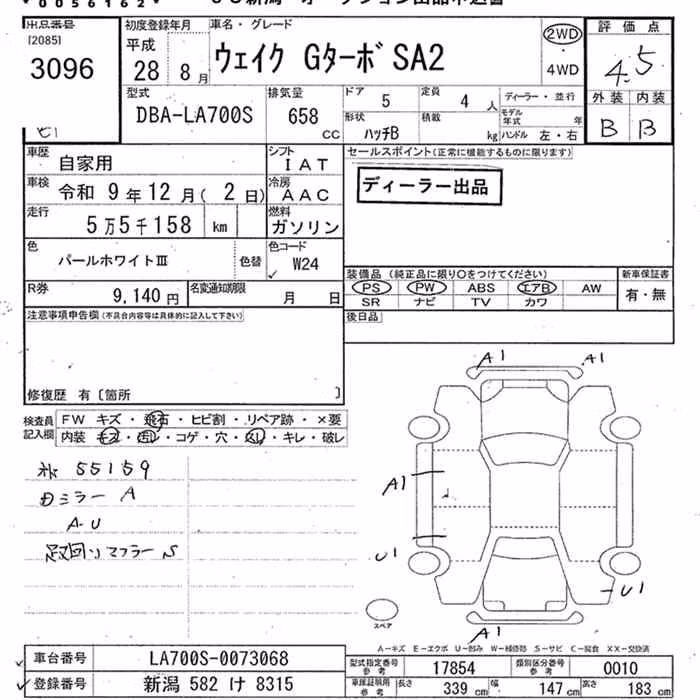 0056162
出品番号
[2085]
3096
初度登録年月
平成
28 8月
車名・グレード
ウェイク Gターボ SA2
2WD
・
4WD
評価点
4.5
外装 内装
B B
型式
DBA-LA700S
排気量
658
CC
ドア 5
定員 4 人
ディーラー・並行
形状
ハッチB
積載
kg
モデル年式 年
ハンドル 左・右
車歴
自家用
シフト
IAT
セールスポイント(正常に機能するものに限ります)
ディーラー出品
車検
令和 9年12月(2日)
冷房
AAC
走行
5万5千158 km
燃料
ガソリン
色
パールホワイトⅢ
色替
色コード
W24
R券
9,140円
名変通知期限
月 日
装備品(純正品に限り○をつけてください)
PS PW ABS エアB AW
SR ナビ TV カワ
新車保証書
有・無
注意事項申告欄(不具合内容等は具体的に記入して下さい)
後日品
修復歴 有〔箇所 〕
検査員記入欄
FW キズ・飛石・ヒビ割・リペア跡・×要
内装 キズ・汚レ・コゲ・穴・スレ・キレ・破レ
55159
ミラー A
A-U
マフラー S
A1
A1
A1
U1
U1
A1
スペア
A-キズ E-エクボ U-凹み W-補修跡 S-サビ C-腐食 XX-交換済
車台番号
LA700S-0073068
登録番号
新潟 582 け 8315
型式指定番号
参考
17854
類別区分番号
参考
0010
車庫証明用
参考
長さ 339 cm
幅 147 cm
高さ 183 cm